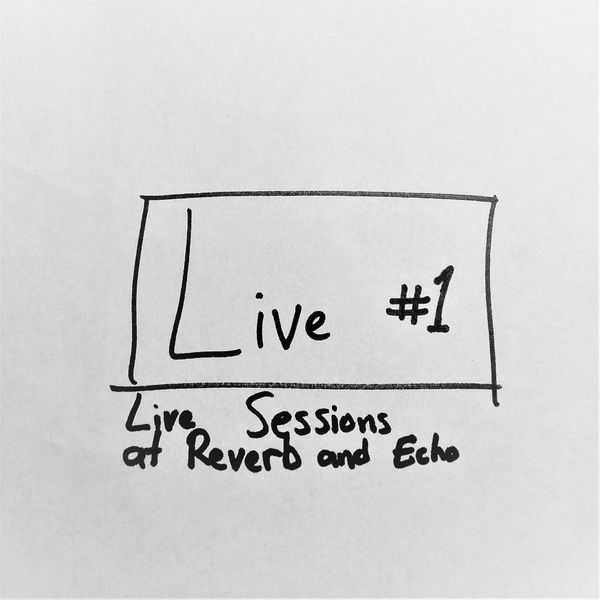 Live #1
Live Sessions
at Reverb and Echo